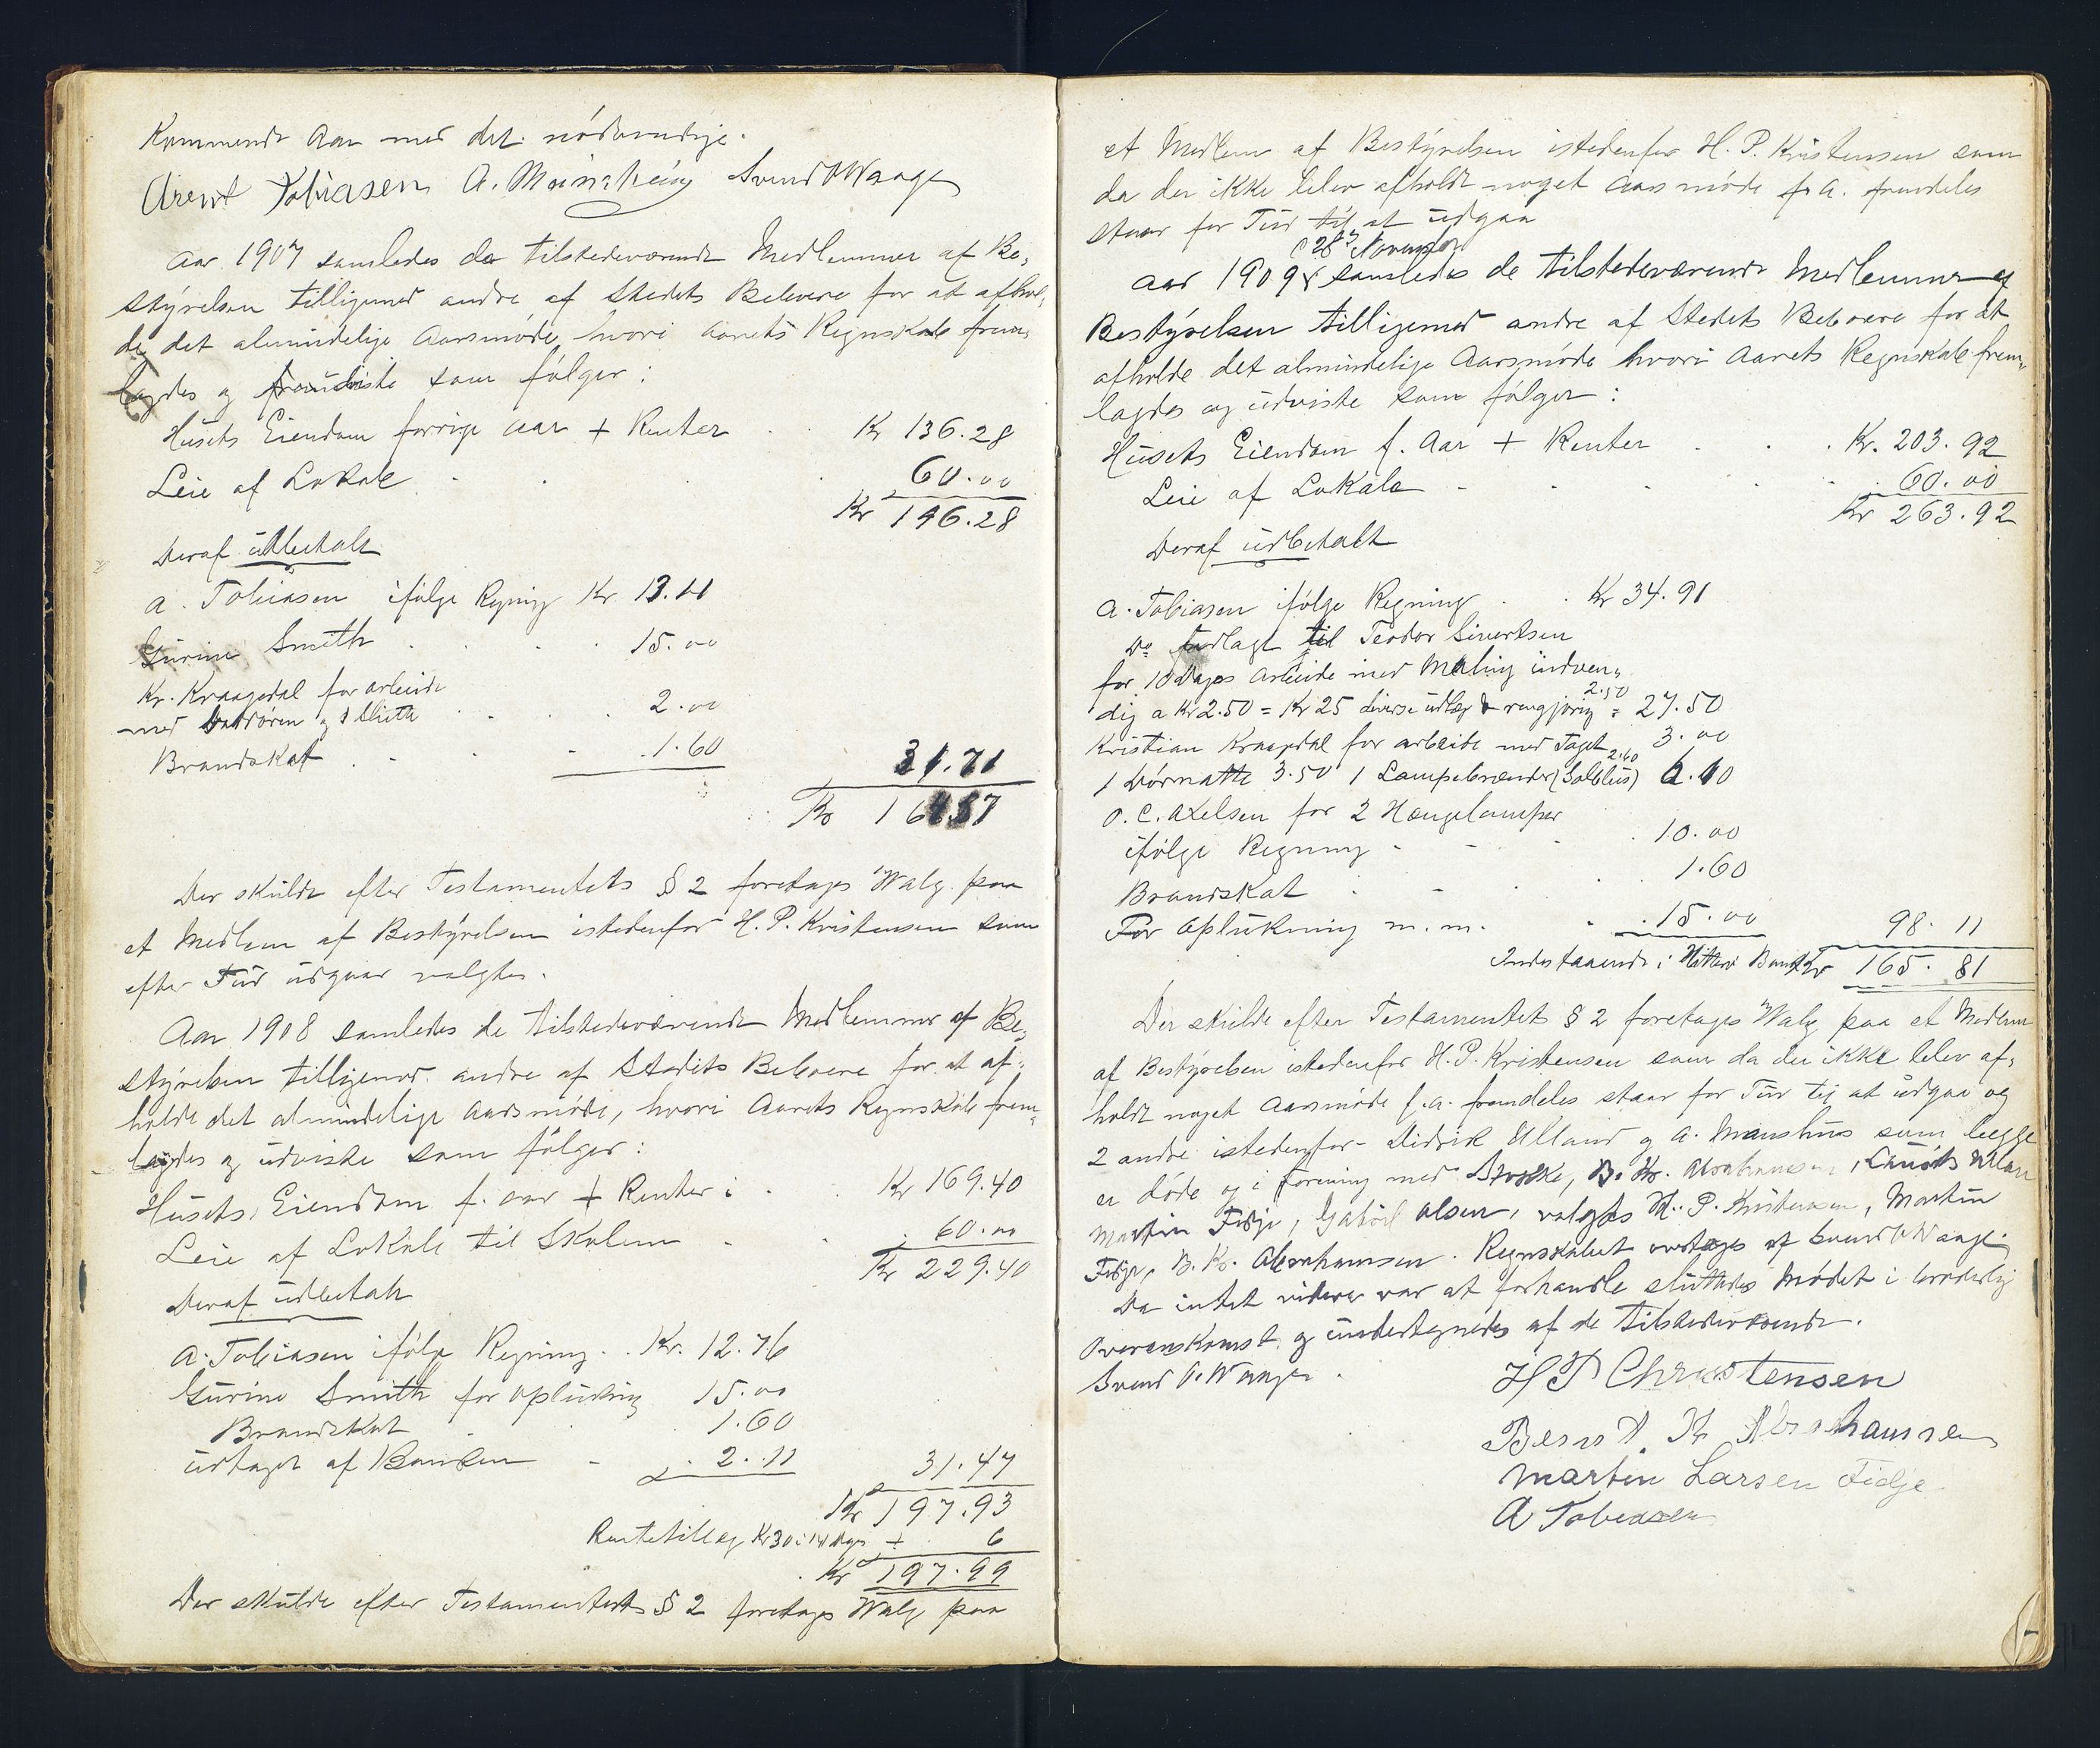 Kommende Aar med det nödvendige.
Arent Tobiasen A. Svend O Waage
Aar 1907 samledes de tilstedeværende Medlemmer af Be„
styrelsen tilligemed andre af Stedets Beboere for at afhol„
de det almindelige Aarsmöde, hvori Aarets Regnskab frem„
lagdes og udviste som fölger:
Husets Eiendom forrige aar + Renter . . Kr 136.28
Leie af Lokale . . . 60.00
Kr 196.28
Deraf udbetalt
A. Tobiasen ifölge Regning Kr 13.11
Gurine Smith . . . 15.00
Kr. Kraagedal for arbeide
med . . . 2.00
Brandskat . . . 1.60
31.71
Kr
Der skulde efter Testamentets § 2 foretages Valg paa
et Medlem af Bestyrelsen istedenfor H. P. Kristensen som
efter Tur udgaar valgtes.
Aar 1908 samledes de tilstedeværende Medlemmer af Be„
styrelsen tilligemed andre af Stedets Beboere for at af„
holde det almindelige Aarsmöde, hvori Aarets Regnskab frem„
lagdes og udviste som fölger:
Husets Eiendom f. aar + Renter . . Kr 169.40
Leie af Lokale til Skolen . . 60.00
Kr 229.40
Deraf udbetalt
A. Tobiasen ifölge Regning . . Kr. 12.76
Gurine Smith for oplukning 15.00
Brandskat 1.60
udtaget af Banken - 2.11
31.47
Kr 197.93
Rentetillæg Kr 30 i 14 dage + 6
Kr 197.99
Der skulde efter Testamentets § 2 foretages Valg paa
et Medlem af Bestyrelsen istedenfor H. P. Kristensen som
da der ikke blev afholdt noget Aarsmöde f. A. fremdeles
staar for Tur til at udgaa
28 November
Aar 1909 samledes de tilstedeværende Medlemmer af
Bestyrelsen tilligemed andre af Stedets Beboere for at
afholde det almindelige Aarsmöde hvori Aarets Regnskab frem„
lagdes og udviste som fölger:
Husets Eiendom f. Aar + Renter . . . Kr. 203.92
Leie af Lokale - . . . 60.00
Kr 263.92
Deraf udbetalt
A. Tobiasen ifölge Regning . . Kr 34.91
Do. til Teodor Sivertsen
for 10 Dages Arbeide med Maling indven„
dig a Kr 2.50 = Kr 25 diverse udlæg & rengjöring 2.50 = 27.50
Kristian Kraagedal for arbeide med Taget 3.00
1 Dörmatte 3.50 1 Lampebrænder (Solblus) 2.60 6.10
O. C. Axelsen for 2 Hængelamper
ifölge Regning - - . . 10.00
Brandskat . - . . 1.60
For oplukning m.m. . . 15.00 98.11
Indestaaende i Bank Kr 165.81
Der skulde efter Testamentet § 2 foretages Valg paa et Medlem
af Bestyrelsen istedenfor H. P. Kristensen som da der ikke blev af„
holdt noget Aarsmöde f.A. fremdeles staar for Tur til at udgaa og
2 andre istedenfor Didrik Ulland og A. som begge
er döde og i med B. Kr. Abrahamsen,
Martin Fidje, Gabriel Olsen, valgtes H. P. Kristensen, Martin
Fidje, B. Kr. Abrahamsen. Regnskabet overtages af Svend O Waage.
Da intet videre var at forhandle sluttedes Mödet i broderlig
Overenskomst og undertegnedes af de tilstedeværende.
Svend O. Waage.
H P Christensen
Bernt Kr Abrahamsen
Martin Larsen Fidje
A Tobiasen